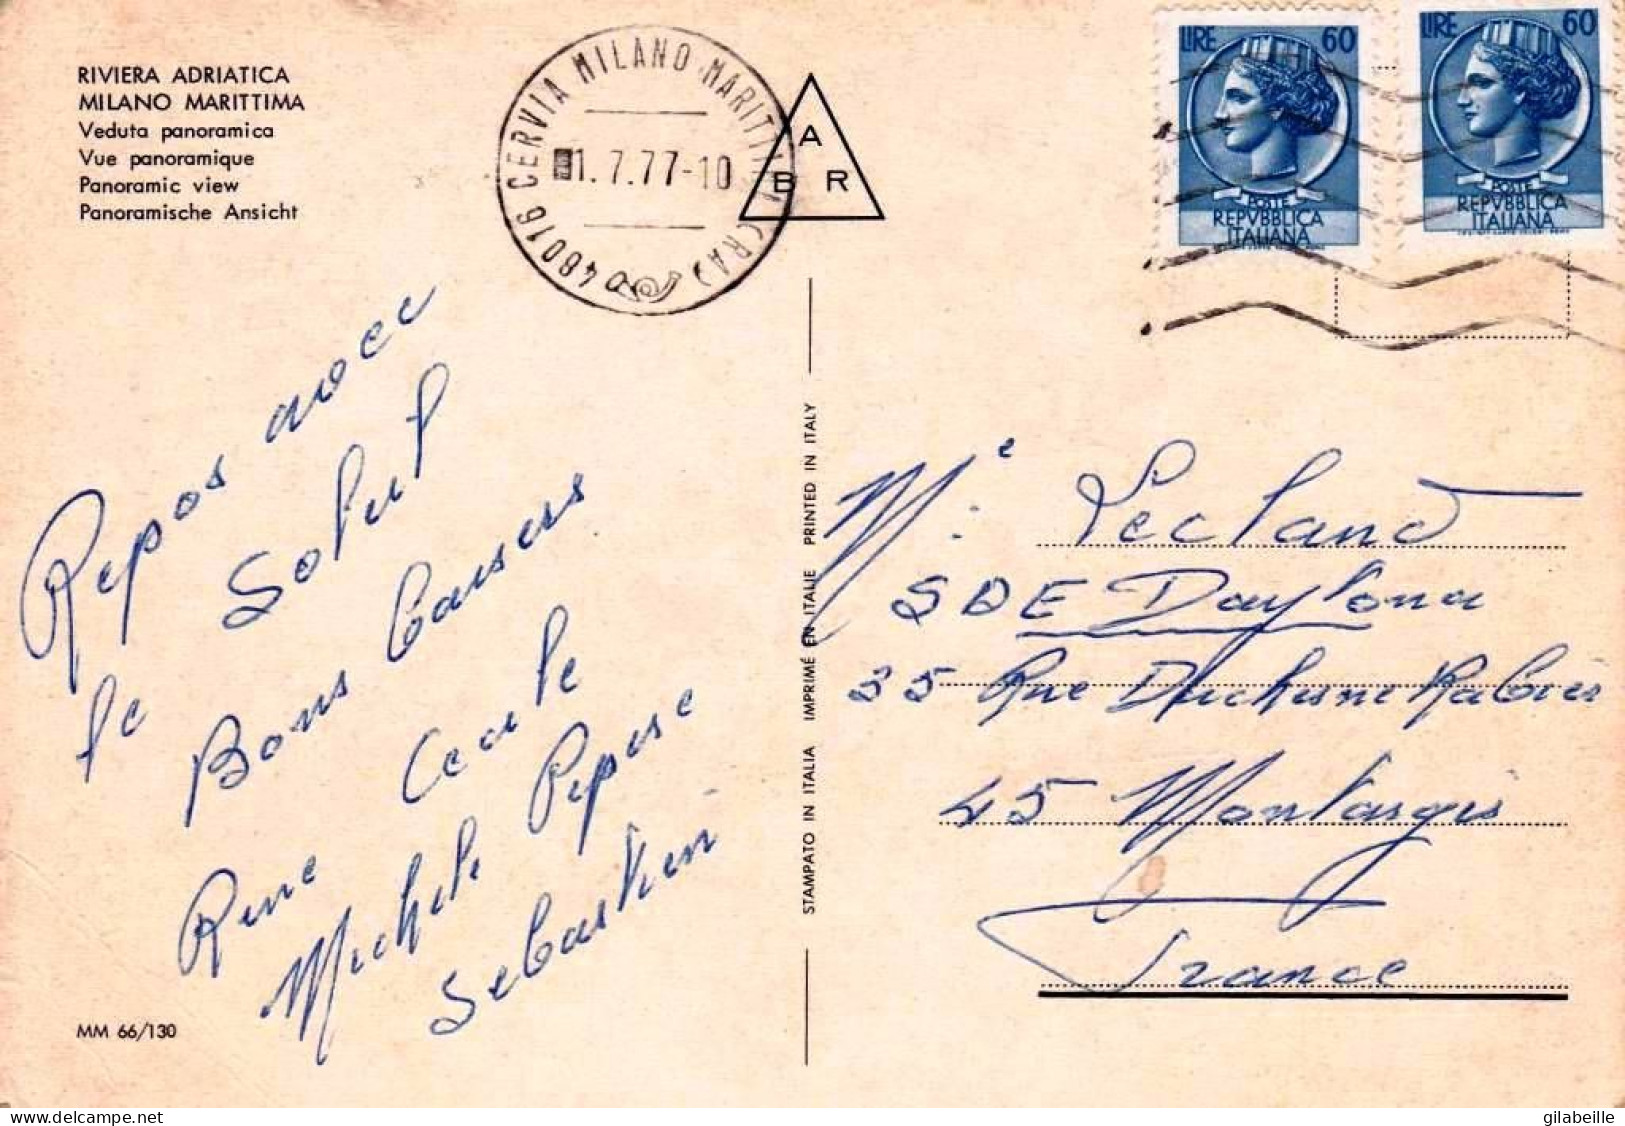 RIVIERA ADRIATICA
MILANO MARITTIMA
Veduta panoramica
Vue panoramique
Panoramic view
Panoramische Ansicht
48016 CERVIA MILANO MARITTIMA (RA)
1.7.77-10
A
B R
LIRE 60
POSTE
REPVBBLICA
ITALIANA
LIRE 60
POSTE
REPVBBLICA
ITALIANA
Repos avec
le Soleil
Bons Baisers
Rene Cecile
Michele
Sebastien
STAMPATO IN ITALIA IMPRIMÉ EN ITALIE PRINTED IN ITALY
SDE Daytona
35 Rue Duchesne Rabier
45 Montargis
France
MM 66/130
delcampe.net
gilabeille